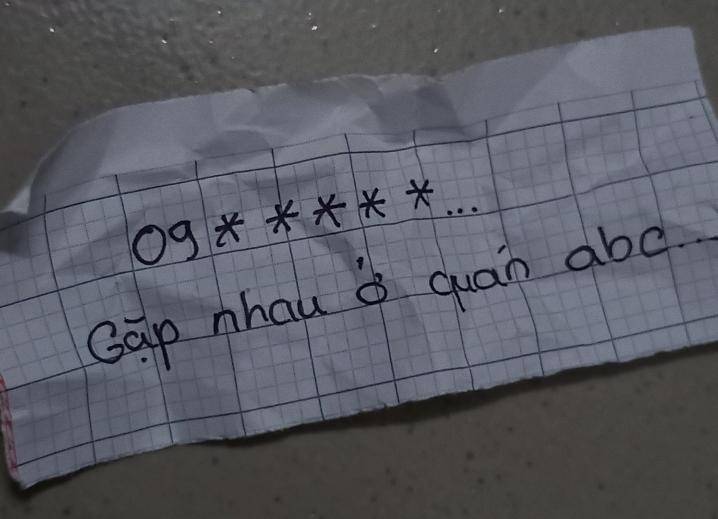 09*****...
Gặp nhau ở quán abc...